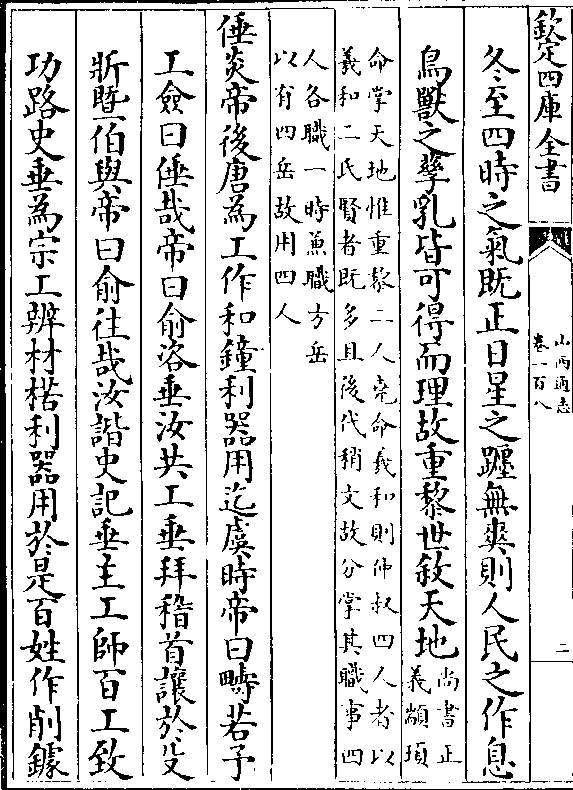 欽定四庫全書
山西通志
卷一百八
二
冬至四時之氣既正日星之躔無爽則人民之作息
鳥獸之孳乳皆可得而理故重黎世敘天地
尚書正
義顓頊
命掌天地惟重黎二人堯命羲和則仲叔四人者以
羲和二氏賢者既多且後代稍文故分掌其職事四
人各職一時兼職方岳
以有四岳故用四人
倕炎帝後唐為工作和鐘利器用迄虞時帝曰疇若予
工僉曰倕哉帝曰俞洛垂汝共工垂拜稽首讓於殳
斨暨伯與帝曰俞往哉汝諧史記垂主工師百工致
功路史垂為宗工辨材楛利器用於是百姓作削鐻